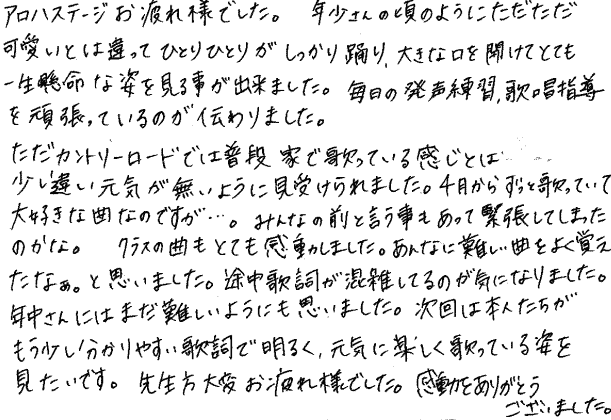 アロハステージお疲れ様でした。 年少さんの頃のようにただただ
可愛いとは違ってひとりひとりがしっかり踊り、大きな口を開けてとても
一生懸命な姿を見る事が出来ました。 毎日の発声練習、歌唱指導
を頑張っているのが伝わりました。
ただカントリーロードでは普段家で歌っている感じとは
少し違い元気が無いように見受けられました。4月からずっと歌っていて
大好きな曲なのですが…。みんなの前と言う事もあって緊張してしまった
のかな。 クラスの曲もとても感動しました。あんなに難しい曲をよく覚え
たなぁ。と思いました。途中歌詞が混雑してるのが気になりました。
年中さんにはまだ難しいようにも思いました。次回は本人たちが
もう少し分かりやすい歌詞で明るく、元気に楽しく歌っている姿を
見たいです。 先生方大変お疲れ様でした。感動をありがとう
ございました。